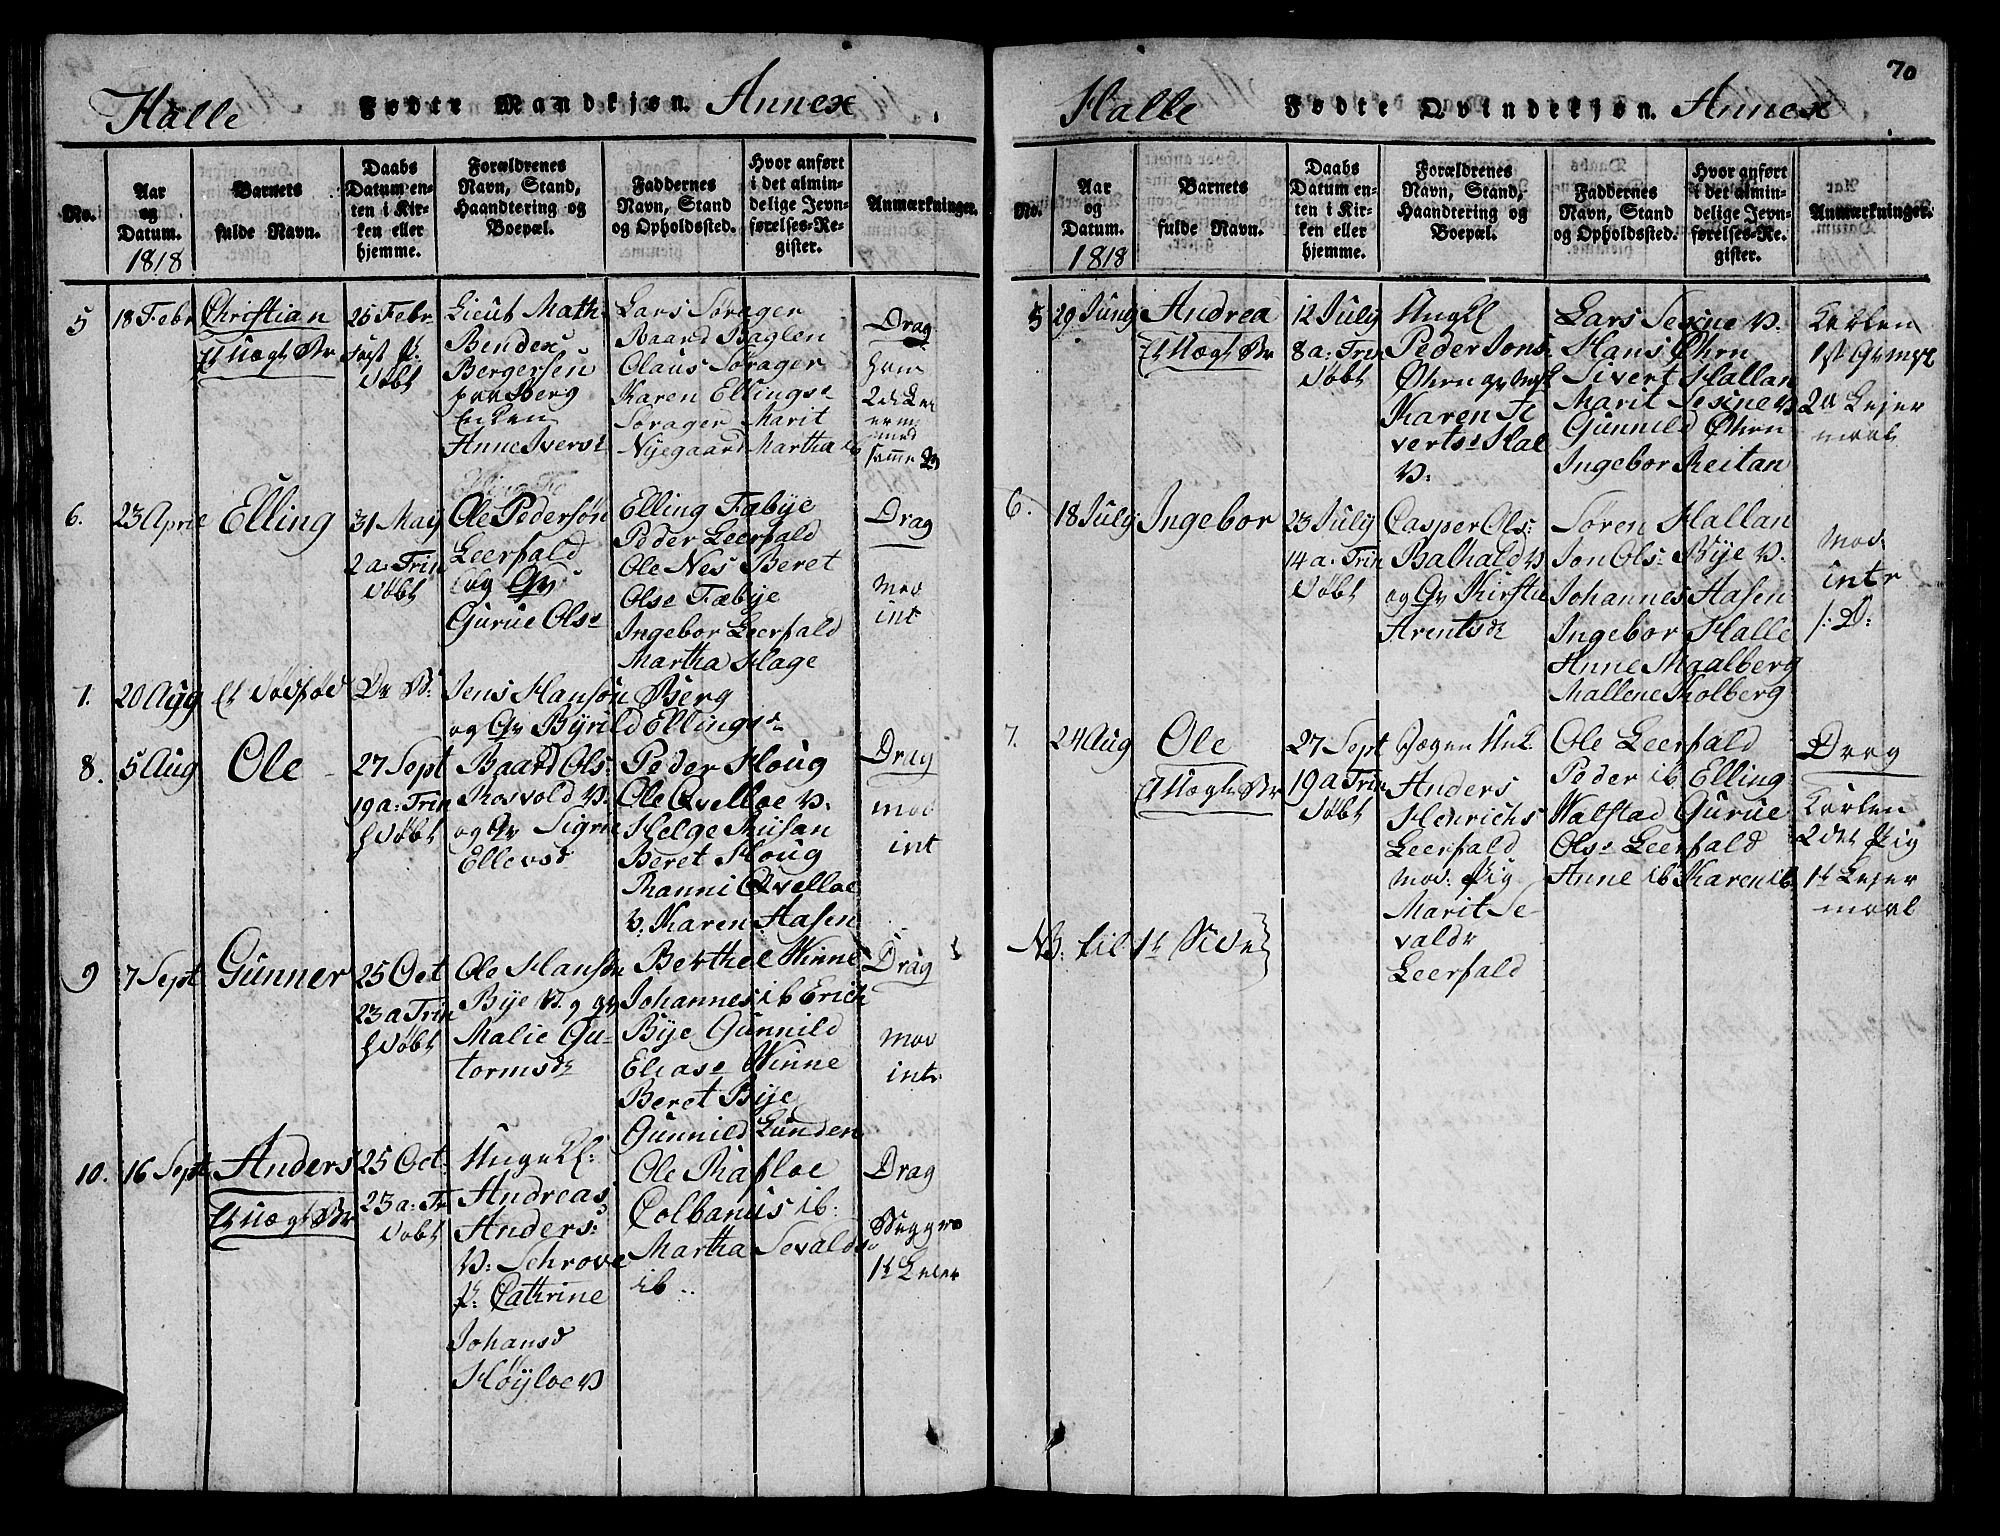 Halle Fødte Mandkjøn. Annex
No.
Aar og Datum.
1818
Barnets fulde Navn.
Daabs Datum enten i Kirken eller hjemme.
Forældrenes Navn, Stand, Haandtering og Boepæl.
Faddernes Navn, Stand og Opholdssted.
Hvor anført i det almindelige Jevnførelses-Register.
Anmærkninger.
5
18 Febr
Christian
Et Uægt Br
26 Febr
døbt
Lieut Math
Bendex
Bergersen
Berg
Enken
Anne Ivers
Lars Sørager
Baard Baglen
Olaus Sørager
Karen Ellings
Sørager Marit
Nyegaard Martha ib
Drag
6.
23 April
Elling
31 Maÿ
2 a: Trin
døbt
Ole Pedersøn
Leerfald
og Gv
Gurue Ols
Elling Fæbÿe
Peder Leerfald
Ole Nes Beret
Olse Fæbÿe
Ingebor Leerfald
Martha Hage
Drag
mod
int
7.
20 Agg
et dødfød
Jens Hansøn Berg
og Gv Bÿrild Ellings
8.
5 Aug
Ole
27 Sept
19 a: Trin
døbt
Baard Ols:
Rosvold
og Gv Sigri
Ellevsd
Peder Houg
Ole Qvelloe
Helge Musan
Beret Houg
Ranni Qvelloe
Karen Hasen
Drag
mod
int
9
7 Sept
Gunner
25 Oct
23 a Trin
døbt
Ole Hansøn
Bÿe
Malie Gu-
tormsd
Berthel Winne
Johannes ib Erich
Bÿe Gunnild
Elias Winne
Beret Bÿe
Gunnild Lunden
Drag
mod
intr
10.
16 Sept
Anders
Et Uægt Br
25 Oct.
23 a: Tr
døbt
Ungkl:
Andreas
Anders:
Schrove
Cathrine
Johansd
Høÿloe
Ole Rafloe
Colbanus ib:
Martha Sevalds
ib..
Drag
Begge
1t Leier
70
Halle Fødte Qvindekjøn. Annex
No.
Aar og Datum.
1818
Barnets fulde Navn.
Daabs Datum enten i Kirken eller hjemme.
Forældrenes Navn, Stand, Haandtering og Boepæl.
Faddernes Navn, Stand og Opholdssted.
Hvor anført i det almindelige Jevnførelses-Register.
Anmærkninger.
5
29 Junÿ
Andrea
Et Uægt Br
12 Julÿ
8 a: Trin
døbt
Ungkl
Peder Jons
Øhrn
Karen Si
verts Hal
Hans Øhrn
Sivert Hallan
Gunnild Øhrn
Ingebor Reitan
Karlen
2d Lejer
maal
6.
18 Julÿ
Ingebor
23 Julÿ
14 a: Trin
døbt
Casper Ols:
og Gv Kirsti
Arentsd
Søren Hallan
Jon Ols: Bÿe
Johannes Hasen
Ingebor Halle
Anne Maalberg
Mallene Kolberg
mod.
intr
7.
24 Aug
Ole
Uægt Br
27 Sept
19 a Trin
døbt
Anders
Henrichs
Leerfald
mod: Pig
Marit Se-
valdr
Leerfald
Ole Leerfald
Peder ib Elling
Walstad Gurue
Ols Leerfald
Anne ib Karen ib
Drag
Karlen
2det Pig
1t Lejer
maal
NB: til 1t Side